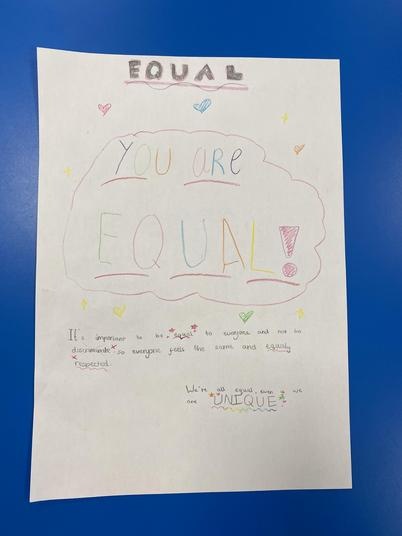 EQUAL
You are
EQUAL!
It's important to be equal to everyone and not to
discriminate so everyone feels the same and equaly
respected.
We're all equal, even if we
are UNIQUE